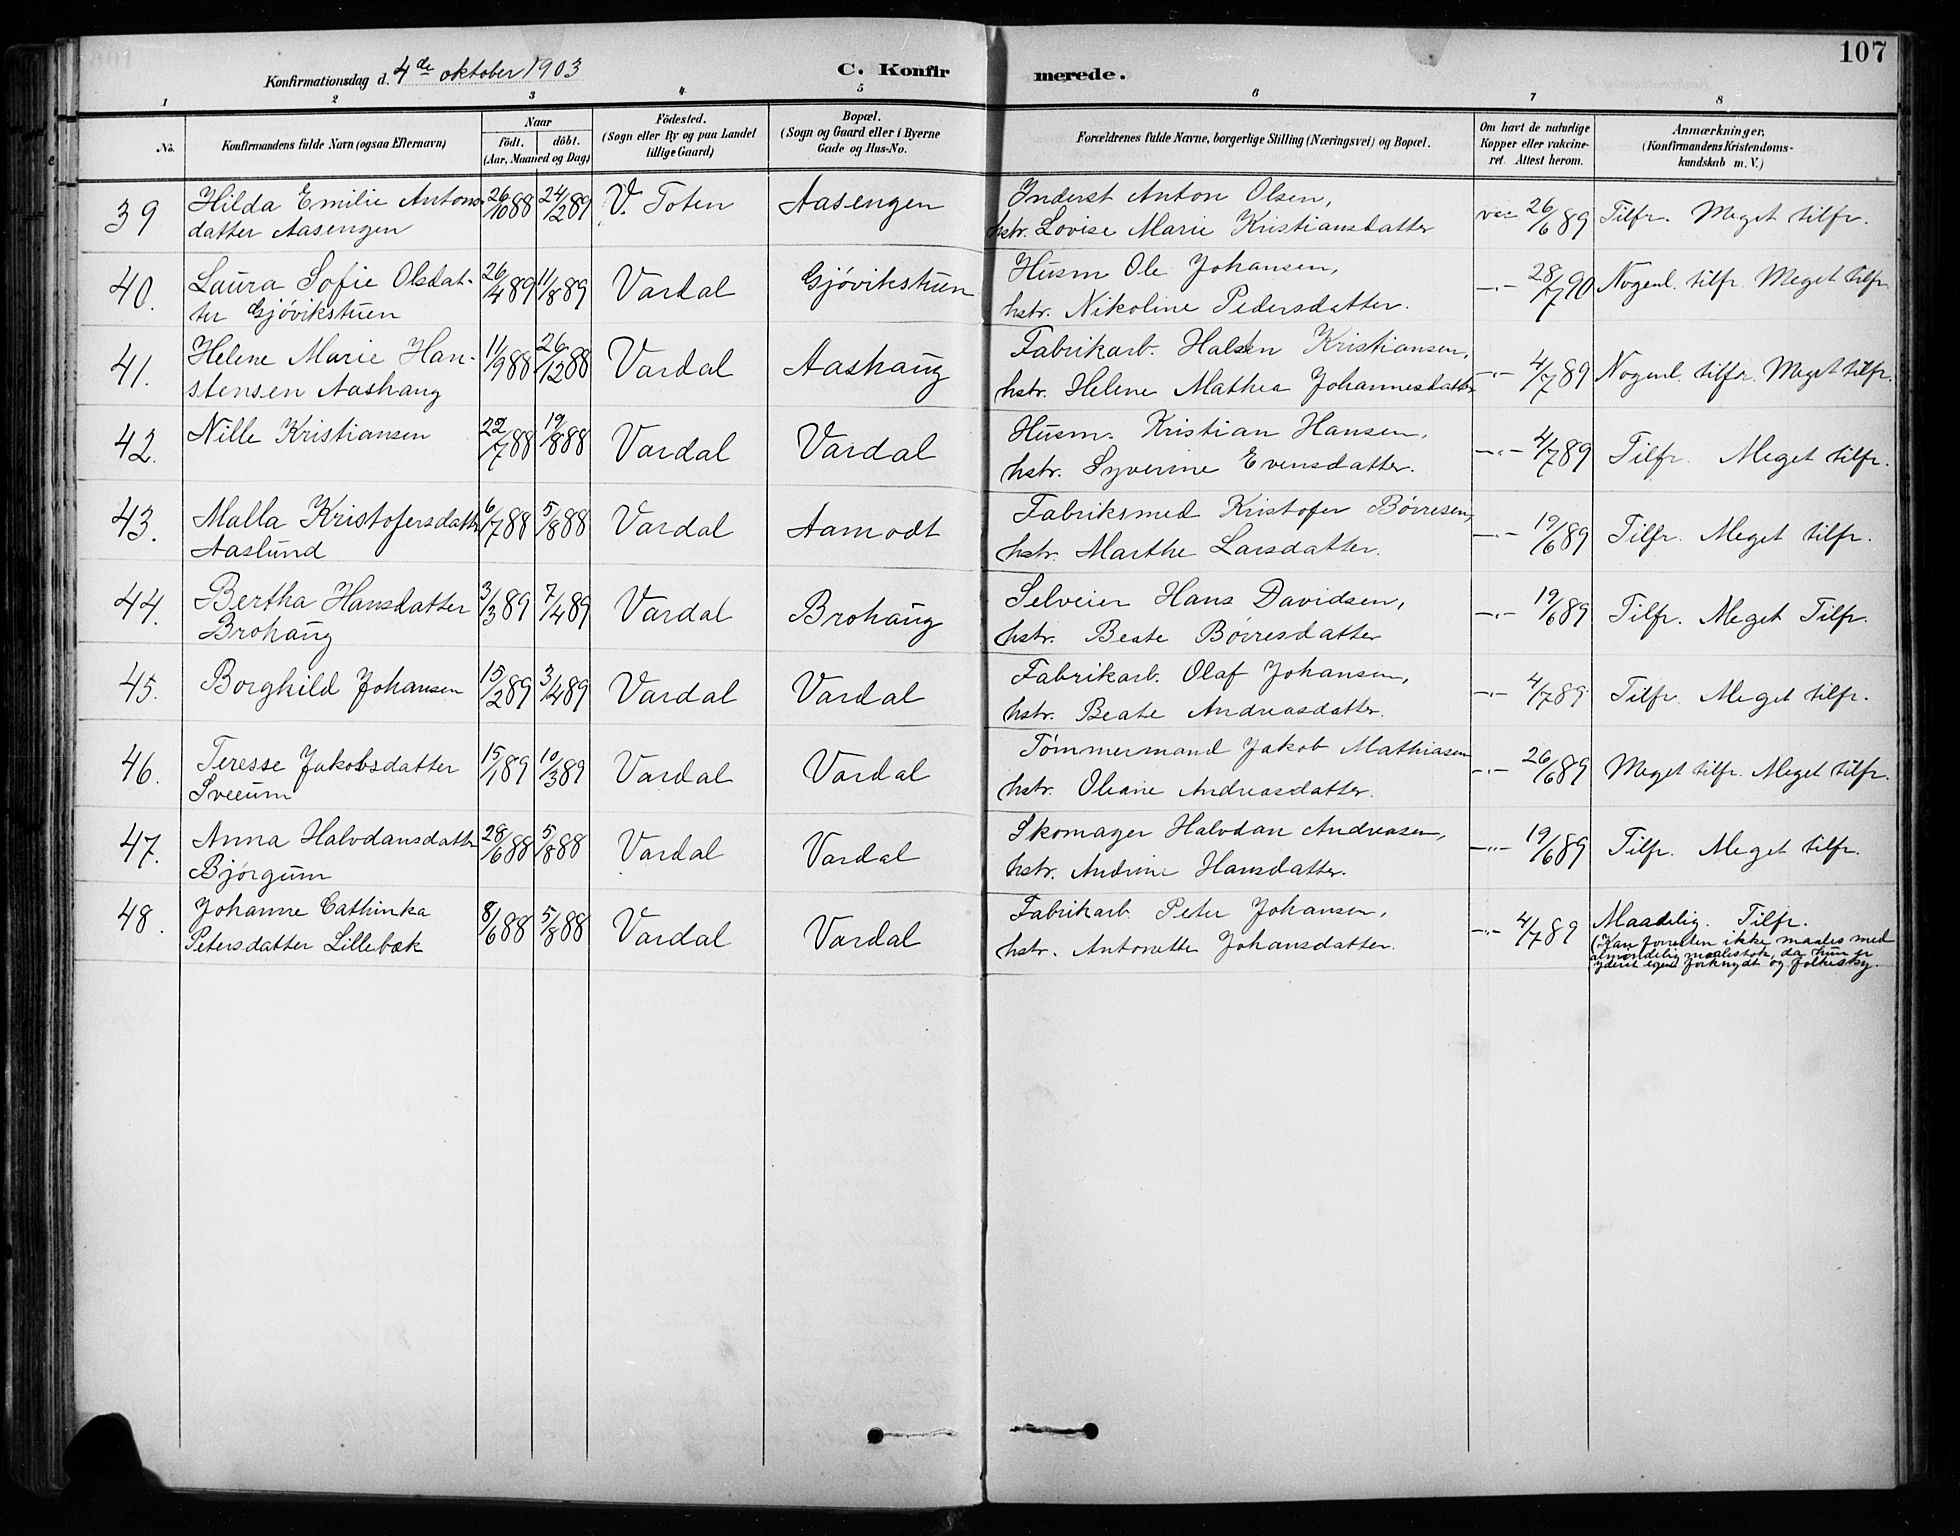 107
Konfirmationsdag d. 4de oktober 1903
C. Konfirmerede.
1 2 3 4 5 6 7 8
No.
Konfirmandens fulde Navn (ogsaa Efternavn)
Naar
födt. döbt.
(Aar, Maaned og Dag)
Födested.
(Sogn eller By og paa Landet
tillige Gaard)
Bopæl.
(Sogn og Gaard eller i Byerne
Gade og Hus-No.
Forældrenes fulde Navne, borgerlige Stilling (Næringsvei) og Bopæl.
Om havt de naturlige
Kopper eller vakcine-
ret. Attest herom.
Anmærkninger,
(Konfirmandens Kristendoms-
kundskab m. V.)
39 Hilda Emilie Antons- 26/10 88 24/2 89 V. Toten Aasengen Inderst Anton Olsen, vac 26/6 89 Tilfr. Meget tilfr.
datter Aasengen hstr. Lovise Marie Kristiansdatter
40. Laura Sofie Olsdat- 26/4 89 11/8 89 Vardal Gjøvikstuen Husm Ole Johansen, -"- 28/7 90 Nogenl. tilfr. Meget tilfr.
ter Gjøvikstuen hstr. Nikoline Pedersdatter.
41. Helene Marie Han- 11/9 88 26/12 88 Vardal Aashaug Fabrikarb. Halsten Kristiansen, -"- 4/7 89 Nogenl. tilfr. Meget tilfr.
stensen Aashaug hstr. Helene Mathea Johannesdatter
42. Nille Kristiansen 22/7 88 19/8 88 Vardal Vardal Husm. Kristian Hansen, -"- 4/7 89 Tilfr. Meget tilfr.
hstr. Syverine Evensdatter.
43. Malla Kristofersdatter 6/7 88 5/8 88 Vardal Aamodt Fabriksmed Kristofer Børresen, -"- 19/6 89 Tilfr. Meget tilfr.
Aaslund hstr. Marthe Larsdatter.
44. Bertha Hansdatter 3/3 89 7/4 89 Vardal Brohaug Selveier Hans Davidsen, -"- 19/6 89 Tilfr. Meget Tilfr.
Brohaug hstr. Beate Børresdatter
45. Borghild Johansen 15/2 89 3/4 89 Vardal Vardal Fabrikarb. Olaf Johansen, -"- 4/7 89 Tilfr. Meget tilfr.
hstr. Beate Andreasdatter.
46. Teresse Jakobsdatter 15/1 89 10/3 89 Vardal Vardal Tømmermand Jakob Mathiasen -"- 26/6 89 Meget tilfr. Meget tilfr.
Sveeum hstr. Oleane Andreasdatter.
47. Anna Halvdansdatter 28/6 88 5/8 88 Vardal Vardal Skomager Halvdan Andreasen, -"- 19/6 89 Tilfr. Meget tilfr.
Bjørgum hstr. Andrine Hansdatter.
48. Johanne Cathinka 8/6 88 5/8 88 Vardal Vardal Fabrikarb. Peter Johansen, -"- 4/7 89 Maadelig. Tilfr.
Petersdatter Lillebæk hstr. Antonette Johansdatter. (Kan forresten ikke maales med
almindelig maalestok, da hun er
yderst egen forknydt og folkesky.